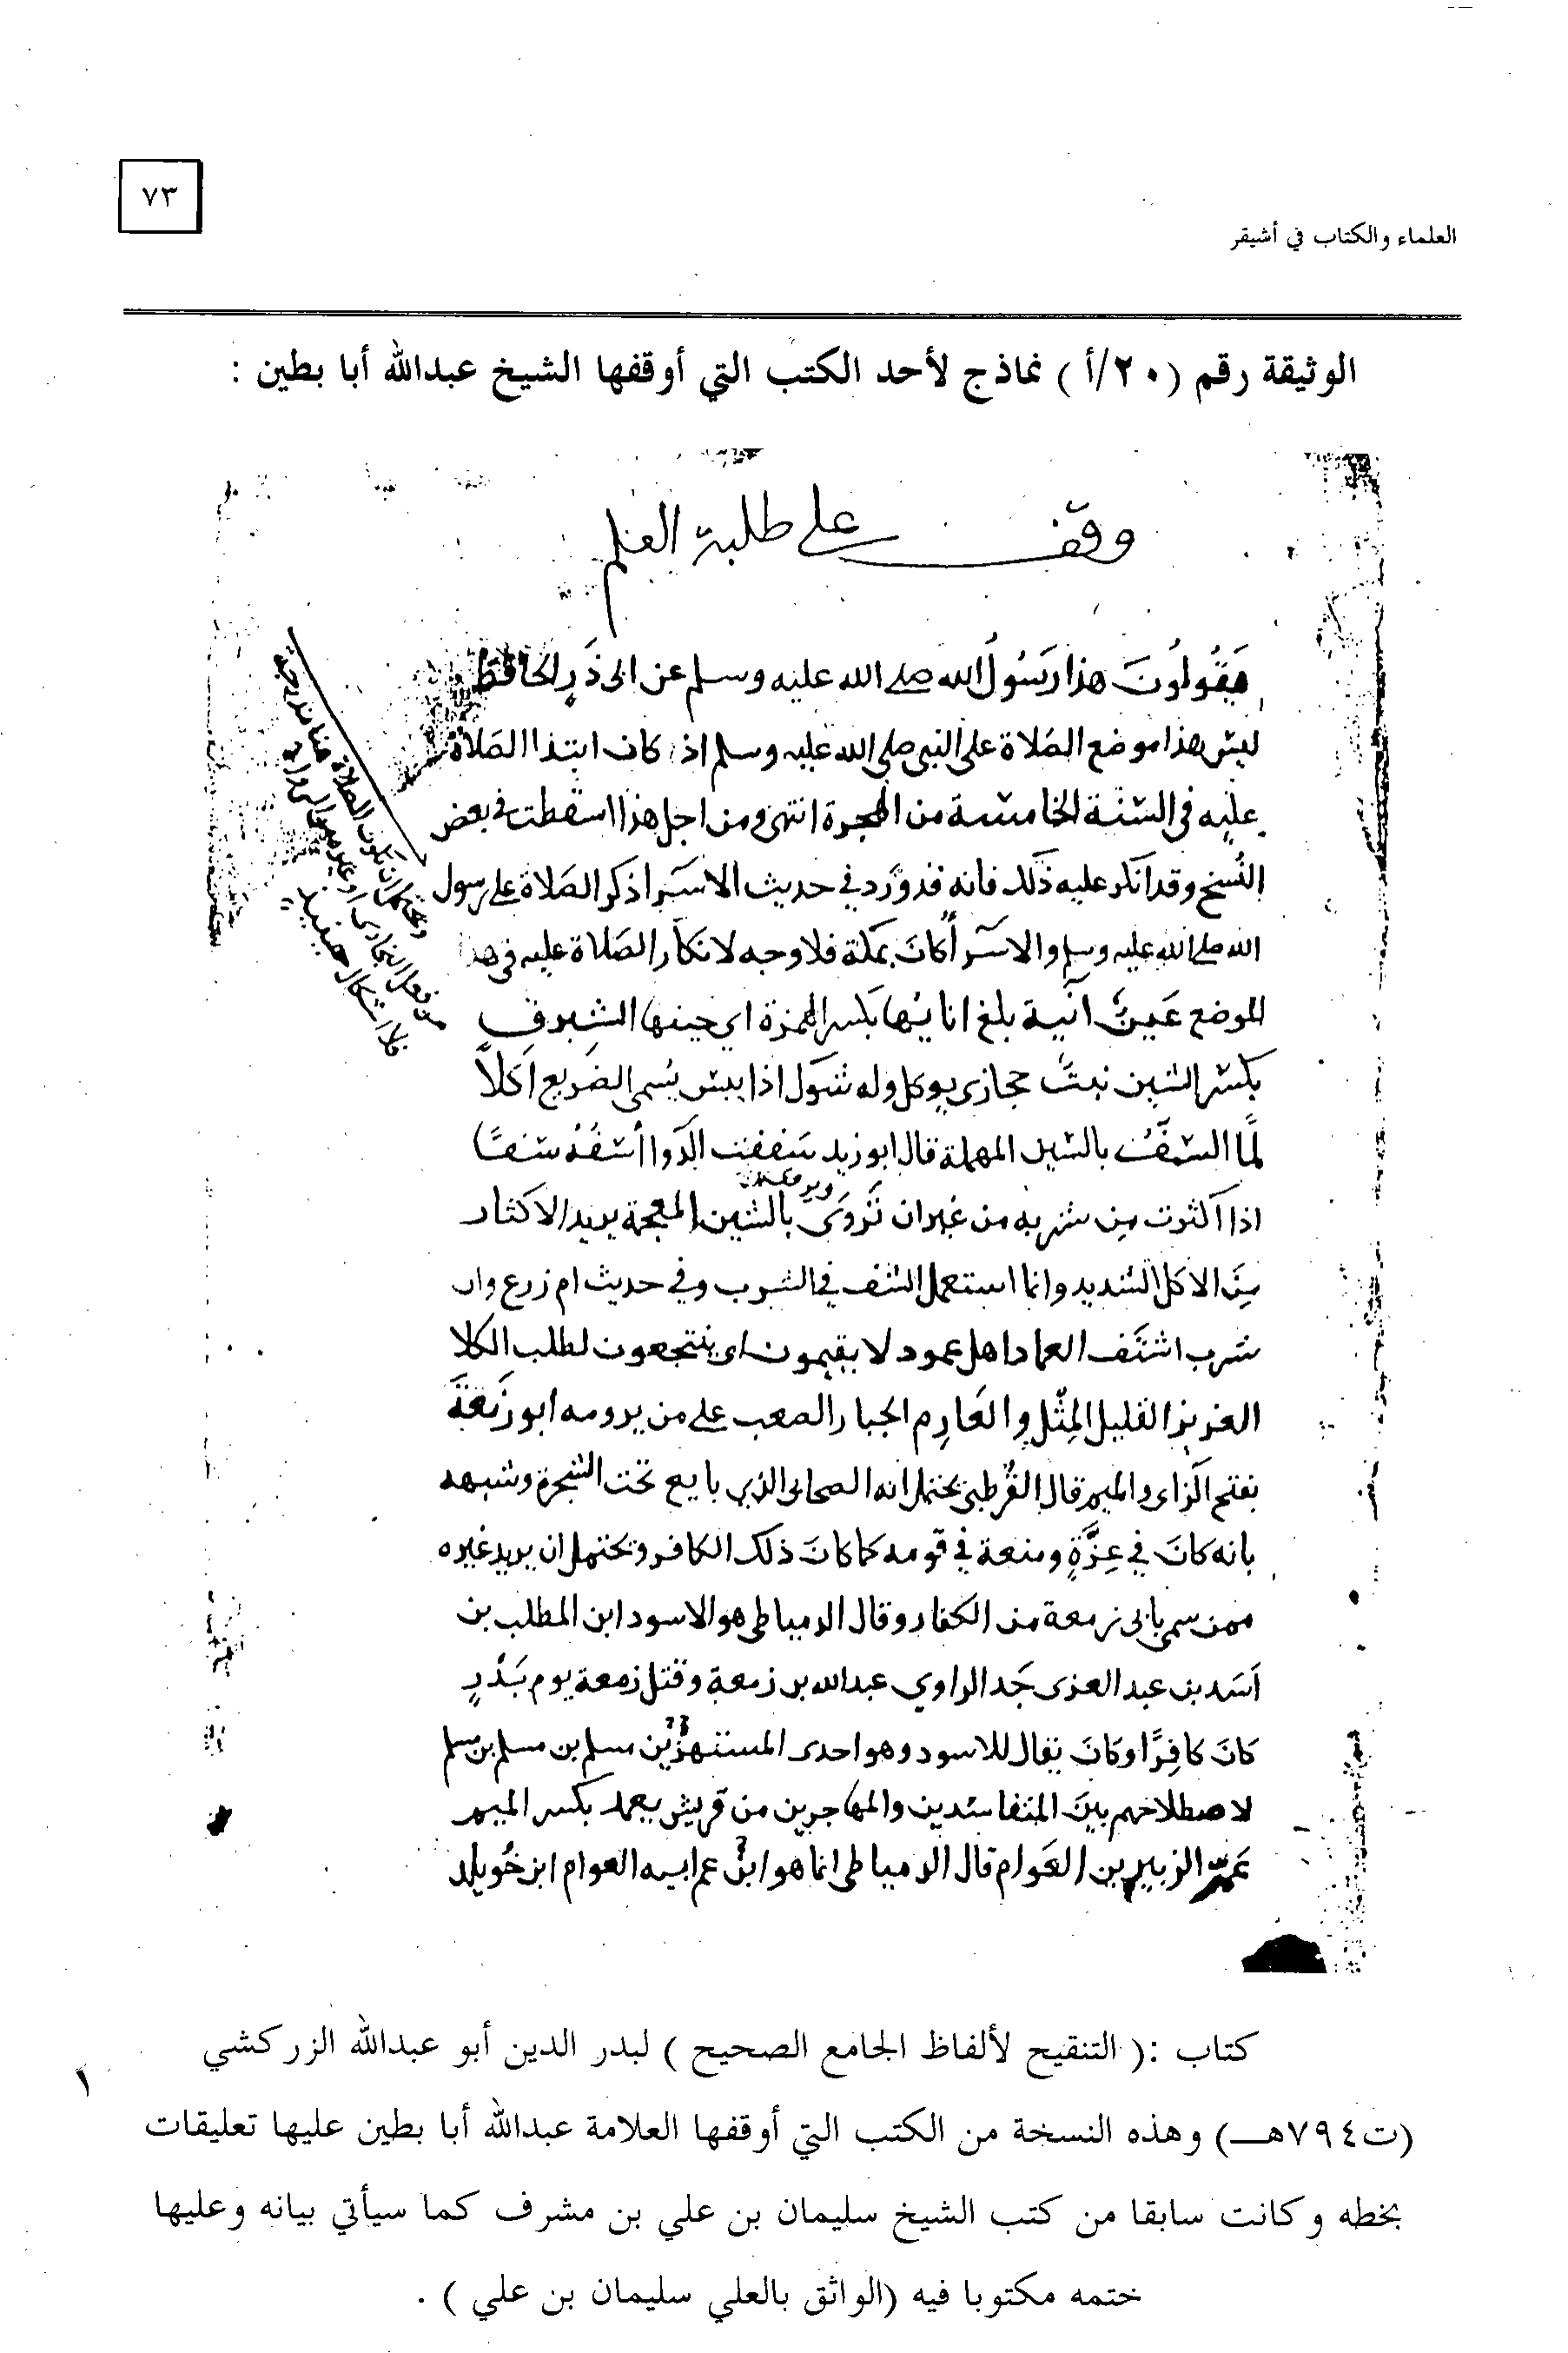 ٧٣
العلماء والكتاب في أشيقر
الوثيقة رقم (٢٠/أ) نماذج لأحد الكتب التي أوقفها الشيخ عبدالله أبا بطين :
وقف على طلبة العلم
فيقُولُونَ هذا رَسُولُ الله صلى الله عليه وسلم عن ابي ذَرٍ الحافظ
ليسَ هذا موضع الصَلاة على النبي صلى الله عليه وسلم اذ كان ابتدا الصَلاة
عليه في السَنَة الخامسَة من الهجرة انتهى ومن اجل هذا اسقطت في بعض
النُسخ وقد انكر عليه ذلك فانه قد وَرد في حديث الاسرَا ذكر الصَلاة على رسول
الله صلى الله عليه وسلم والاسرَا كانَ بمكة فلا وجه لانكار الصَلاة عليه في هذا
الموضع عَينٍ آنية بلغ اناينُها بكسر الهمزة اي حينها الشبرق
بكسر الشين نبتٌ حجازي يوكل وله شوك اذا يبس يُسمى الضَريع اَكلاً
لمًا السَفُّ بالسين المهملة قال ابو زيد سَففت الدَوا اُسَفُّه سَفًا
اذا اكثرت مِن شربه من غيران تَروَى بالشين المعجمة يريد الاكثار
مِنَ الاكل الشديد وانما استعمل الشف في الشرب وفي حديث ام زرع وان
شرب اشتَف العماد اهل عمود لا يقيمون اي ينتجعون لطلب الكلا
العزيز القليل المِثل والعَارِم الجبار الصعب على من يرومه ابو زَمَعَة
بفتح الزاي والميم قال القُرطبي يحتمل انه الصحابي الذي بايع تحت الشجرة وشبهه
بانه كانَ في عِزَّةٍ ومنعة في قومه كما كانَ ذلك الكافر ويحتمل ان يريد غيره
ممن سمي بابي زمعة من الكفار وقال الدمياطي هو الاسود ابن المطلب بن
اَسَد بن عبد العزى جَد الراوي عبدالله بن زمعة وقتل زمعة يوم بَدْرٍ
كانَ كافِرًا وكانَ يقال للاسود وهو احدى المستهزئين مسلم بن مسلم بن مسلم
لاصطلاحهم بينَ المتفاسدين والمهاجرين من قريش يعمِد بكسر الميم
عَمِّ الزبير بن العَوام قال الدمياطي انما هو ابنُ عم ابيه العوام ابن خُويلد
ويحتمل ان تكون الصلاة هنا مدرجة
من فعل البخاري او غيره من الرواة
فلا اشكال حينئيذ
كتاب :( التنقيح لألفاظ الجامع الصحيح ) لبدر الدين أبو عبدالله الزركشي
(ت٧٩٤هـ) وهذه النسخة من الكتب التي أوقفها العلامة عبدالله أبا بطين عليها تعليقات
بخطه وكانت سابقا من كتب الشيخ سليمان بن علي بن مشرف كما سيأتي بيانه وعليها
ختمه مكتوبا فيه (الواثق بالعلي سليمان بن علي ) .